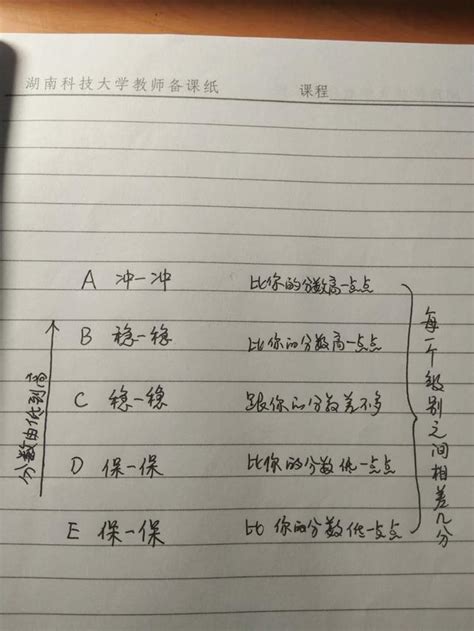 湖南科技大学教师备课纸 课程
A 冲一冲 比你的分数高一点点
B 稳一稳 比你的分数高一点点
C 稳一稳 跟你的分数差不多
D 保一保 比你的分数低一点点
E 保一保 比你的分数低一点点
分数由低到高
每一个级别之间相差几分